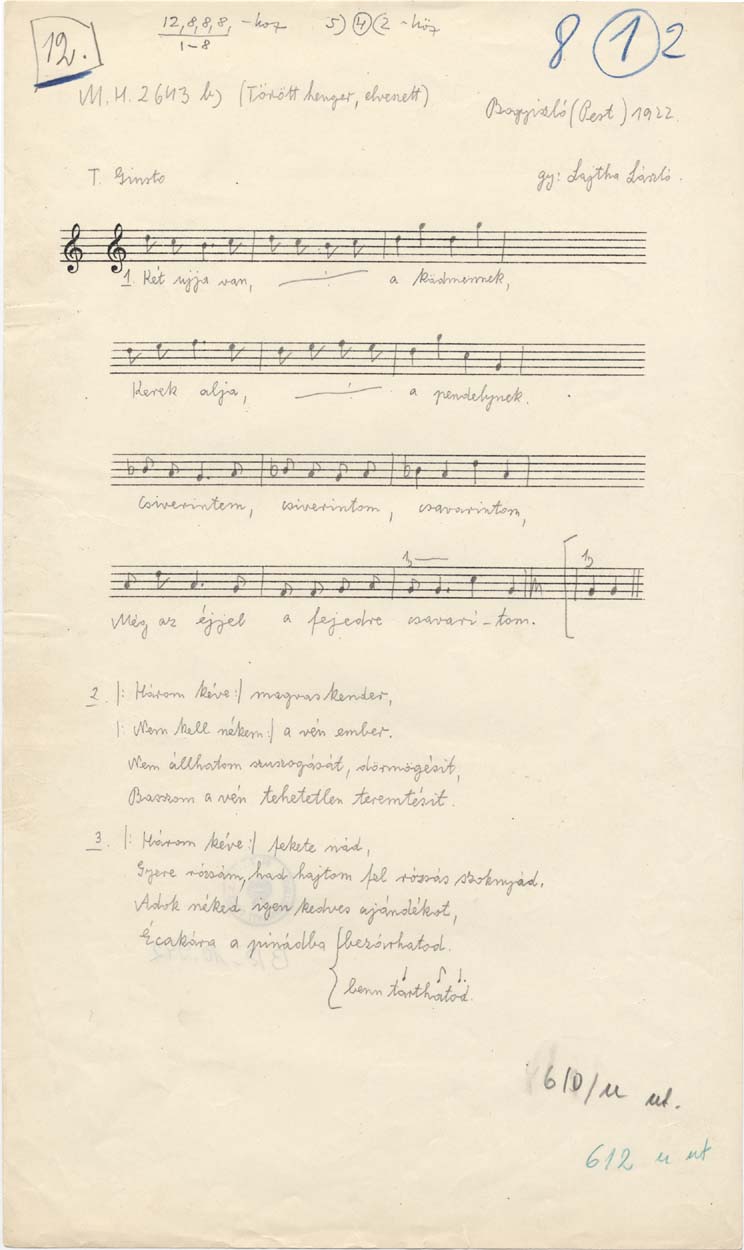 12.
12,8,8,8, -hoz 5) 4 (2 -höz
1-8
8 1 2
M.H. 2643 b) (Törött henger, elveszett)
Bogyiszló (Pest) 1922.
T. Giusto
gy: Lajtha László.
1. Két ujja van, a ködmennek,
Kerek alja, a pendelynek.
Csiverintem, csiverintom, csavarintom,
13
13
Még az éjjel a fejedre csavarí-tom.
2. |: Három kéve :| magvas kender,
|: Nem kell nékem :| a vén ember.
Nem állhatom szuszogását, dörmögésit,
Basszom a vén tehetetlen teremtésit.
3. |: Három kéve :| fekete nád,
Gyere rózsám, had hajtom fel rózsás szoknyád.
Adok néked igen kedves ajándékot,
Écakára a pinádba bezárhatod.
benn tarthatod.
610/u ut.
612 u ut